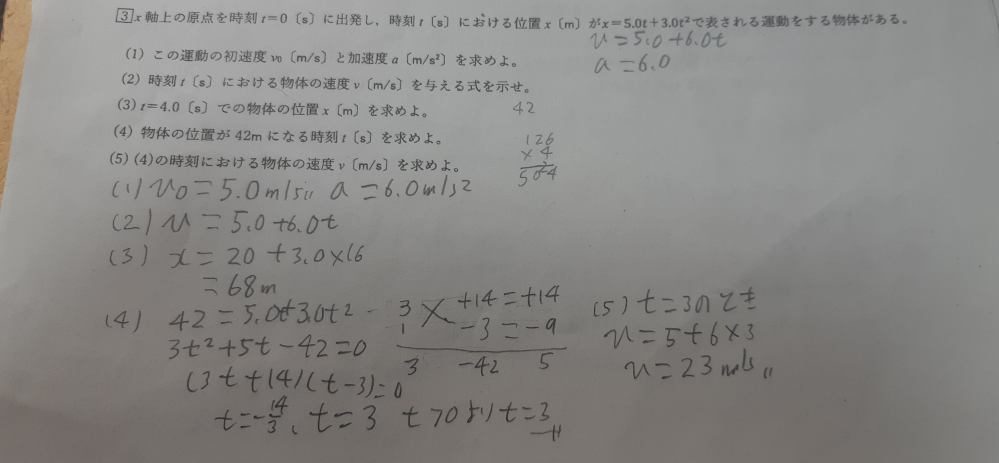 3 x軸上の原点を時刻t=0〔s〕に出発し、時刻t〔s〕における位置x〔m〕がx=5.0t+3.0t²で表される運動をする物体がある。
v=5.0+6.0t
a=6.0
(1) この運動の初速度v₀〔m/s〕と加速度a〔m/s²〕を求めよ。
(2) 時刻t〔s〕における物体の速度v〔m/s〕を与える式を示せ。
(3) t=4.0〔s〕での物体の位置x〔m〕を求めよ。
42
(4) 物体の位置が42mになる時刻t〔s〕を求めよ。
(5) (4)の時刻における物体の速度v〔m/s〕を求めよ。
126
×4
504
(1) v0=5.0m/s〃 a=6.0m/s2
(2) v=5.0+6.0t
(3) x=20+3.0×16
=68m
(4) 42=5.0t+3.0t2
3t²+5t-42=0
(3t+14)(t-3)=0
t=-14/3、t=3 t>0よりt=3〃
3 +14=+14
1 -3=-9
3 -42 5
(5) t=3のとき
v=5+6×3
v=23m/s〃